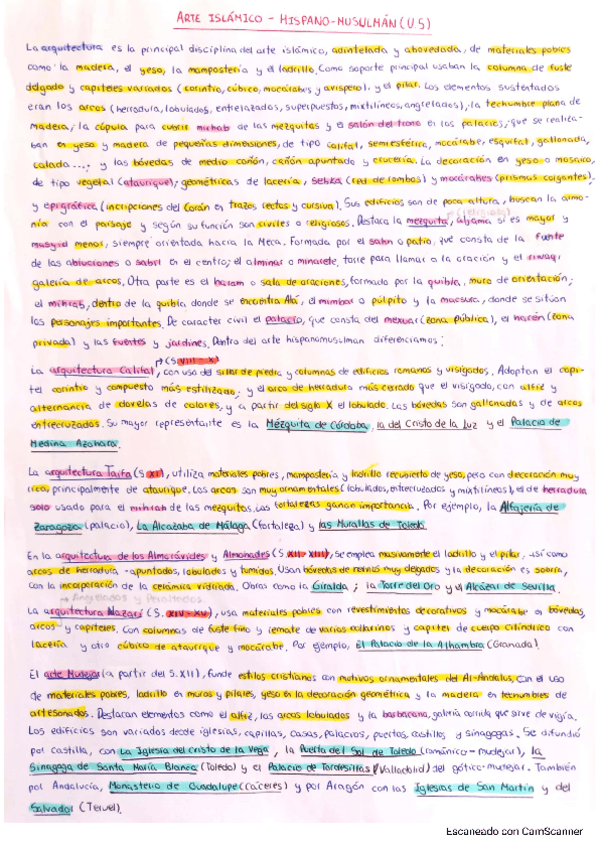 ARTE ISLÁMICO - HISPANO-MUSULMÁN (U.5)
La arquitectura es la principal disciplina del arte islámico, adintelada y abovedada, de materiales pobres
como: la madera, el yeso, la mampostería y el ladrillo. Como soporte principal usaban la columna de fuste
delgado y capiteles variados (corintio, cúbico, mocárabes y avispero). y el pilar. Los elementos sustentados
eran los arcos (herradura, lobulados, entrelazados, superpuestos, mixtilíneos, angrelados), la techumbre plana de
madera, la cúpula para cubrir mihrab de las mezquitas y el salón del trono en los palacios, que se realiza-
ban en yeso y madera de pequeñas dimensiones, de tipo califal, semiesférica, mocárabe, esquifat, gallonada,
calada...; y las bóvedas de medio cañón, cañón apuntado y crucería. La decoración en yeso o mosaico,
de tipo vegetal (ataurique); geométricas de lacería, sebka (red de rombos) y mocárabes (prismas colgantes),
y epigráfica (incripciones del Corán en trazos rectas y cursiva). Sus edificios son de poca altura, buscan la armo-
nía con el paisaje y según su función son civiles o religiosos. Destaca la mezquita, aljama si es mayor y
(religioso)
masyid menos, siempre orientada hacia la Meca. Formada por el sahn o patio, que consta de la fuente
de las abluciones o sabil en el centro; el alminar o minarete, torre para llamar a la oración y el riwaq,
galería de arcos. Otra parte es el haram o sala de oraciones, formado por la quibla, muro de orientación;
el mihrab, dentro de la quibla donde se encontra Alá, el mimbar o púlpito y la macsura, donde se sitúan
los personajes importantes. De caracter civil el palacio, que consta del mexuar (zona pública), el harén (zona
privada) y las fuentes y jardines. Dentro del arte hispanomusulman diferenciamos:
(S.VIII - X)
La arquitectura Califal, con uso del sillar de piedra y columnas de edificios romanos y visigodos. Adoptan el capi-
tel corintio y compuesto más estilizado; y el arco de herradura más cerrado que el visigodo, con alfiz y
alternancia de dovelas de colores, y a partir del siglo X el lobulado. Las bóvedas son gallonadas y de arcos
entrecruzados. Su mayor representante es la Mézquita de Córdoba, la del Cristo de la Luz y el Palacio de
Medina Azahara.
La arquitectura Taifa (S.XI), utiliza materiales pobres, mampostería y ladrillo recubierto de yeso, pero con decoración muy
rica, principalmente de ataurique. Los arcos son muy ornamentales (lobulados, entrecruzados y mixtilíneos), el de herradura
solo usado para el mihrab de las mezquitas. Las fortalezas ganan importancia. Por ejemplo, la Alfajería de
Zaragoza (palacio), La Alcazaba de Málaga (fortaleza) y las Murallas de Toledo.
En la arquitectura de los Almorávides y Almohades (S.XII - XIII), se emplea masivamente el ladrillo y el pilar, así como
arcos de herradura - apuntados, lobulados y tumidos. Usan bóvedas de nervios muy delgados y la decoración es sobria,
con la incorporación de la cerámica vidriada. Obras como la Giralda; la Torre del Oro y el Alcázar de Sevilla.
La arquitectura Nazarí (S. XIV - XV), usa materiales pobres con revestimientos decorativos y mocárabe en bóvedas,
arcos y capiteles. Con columnas de fuste fino y remate de varios collarinos y capitel de cuerpo cilíndrico con
lacería y otro cúbico de ataurique y mocárabe. Por ejemplo, El Palacio de la Alhambra (Granada).
El arte Mudejar (a partir del S.XII), funde estilos cristianos con motivos ornamentales del Al-Andalus, con el uso
de materiales pobres, ladrillo en muros y pilares, yeso en la decoración geométrica y la madera en techumbres de
artesonados. Destacan elementos como el alfiz, los arcos lobulados y la barbacana, galería corrida que sirve de vigía.
Los edificios son variados desde iglesias, capillas, casas, palacios, puertas, castillos y sinagogas. Se difundió
por castilla, con La Iglesia del cristo de la Vega, la Puerta del Sol de Toledo (románico-mudejar), la
Sinagoga de Santa María Blanca (Toledo) y el Palacio de Tordesillas (Valladolid) del gótico-mudejar. También
por Andalucía, Monasterio de Guadalupe (Cáceres) y por Aragón con las Iglesias de San Martín y del
Salvador (Teruel).
Escaneado con CamScanner